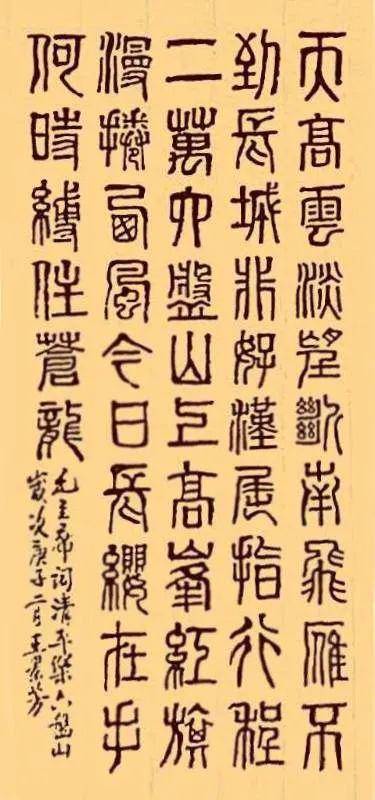 天高雲淡望斷南飛雁不
到長城非好漢屈指行程
二萬六盤山上高峯紅旗
漫捲西風今日長纓在手
何時縛住蒼龍
毛主席词清平樂六盘山
歲次庚子二月王芬